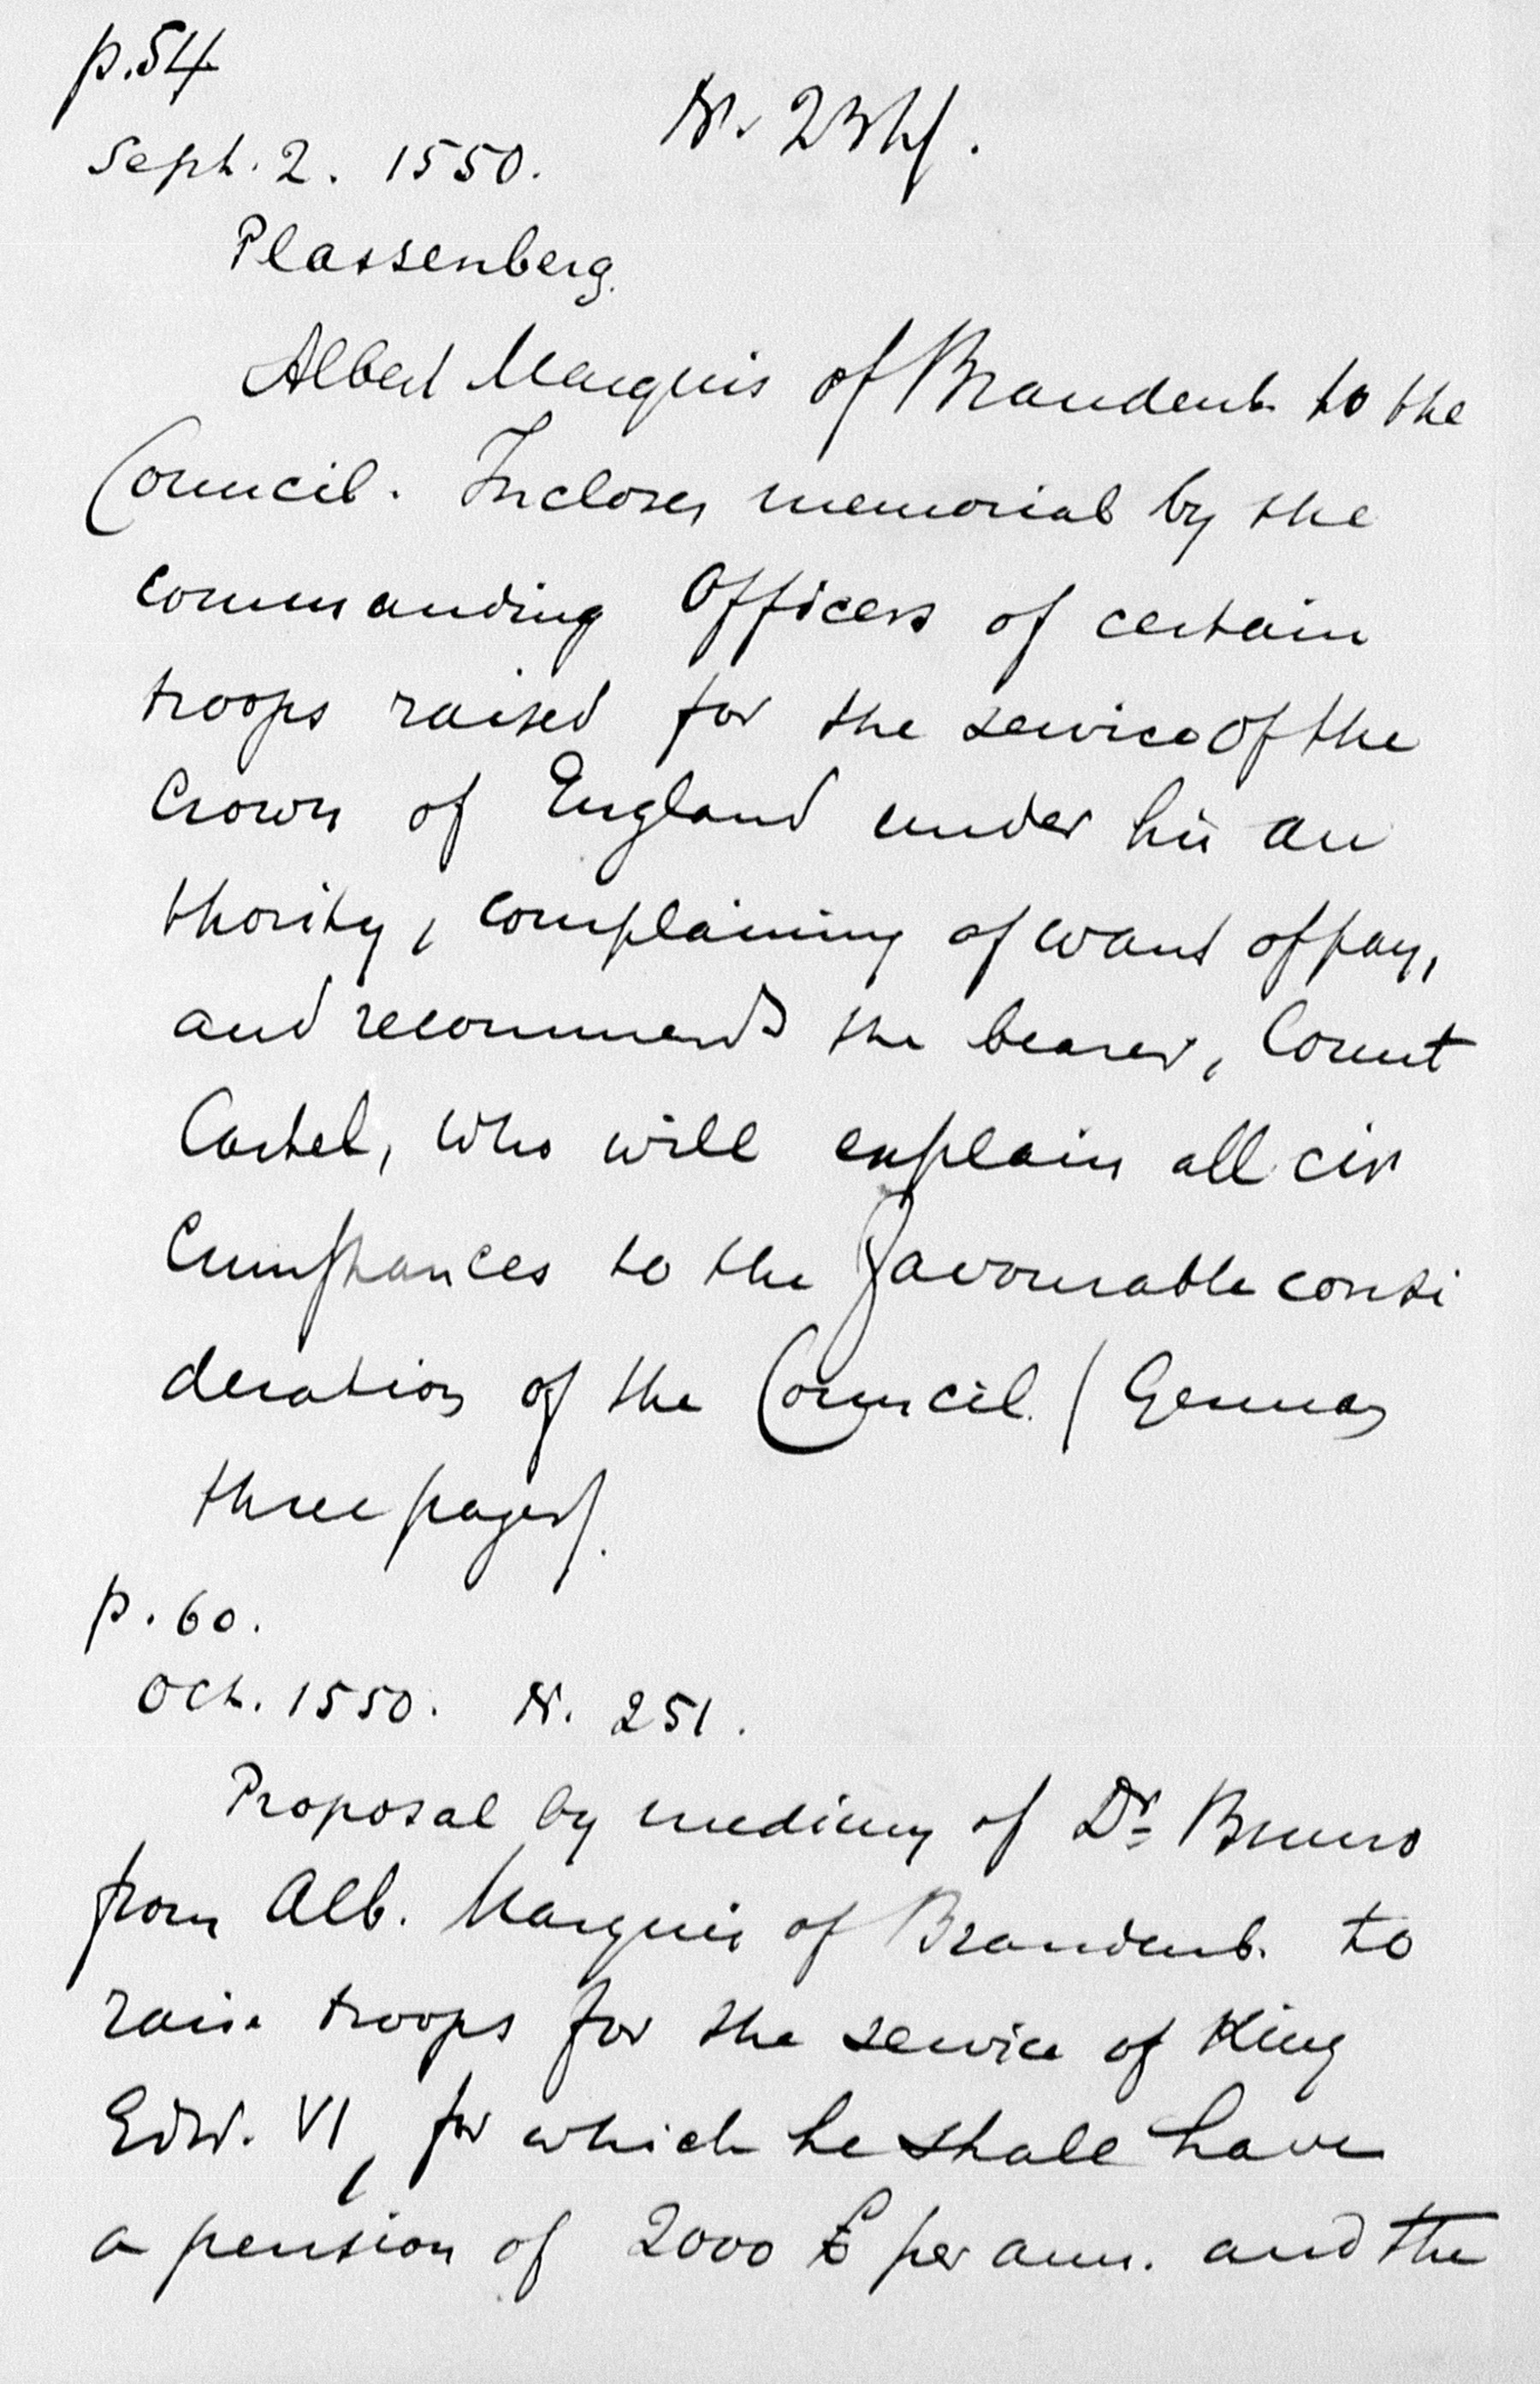 p. 54
N. 234.
Sept. 2. 1550.
Plassenberg.
Albert Marquis of Brandenb. to the
Council. Incloses memorial by the
commanding Officers of certain
troops raised for the service of the
Crown of England under his au
thority, complaining of want of pay,
and recommends the bearer, Count
Castel, who will explain all cir
cumstances to the favourable consi
deration of the Council. (German
three pages).
p. 60.
Oct. 1550. N. 251.
Proposal by medium of Dr Bruno
from Alb. Marquis of Brandenb. to
raise troops for the service of King
Edw. VI, for which he shall have
a pension of 2000 £ per ann. and the